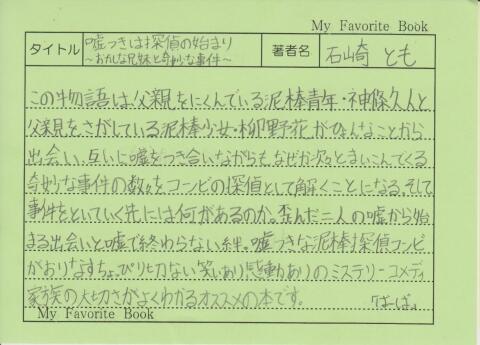 My Favorite Book
タイトル 嘘つきは探偵の始まり 著者名 石崎 とも
～おかしな兄妹と奇妙な事件～
この物語は父親をにくんでいる泥棒青年・神條久人と
父親をさがしている泥棒少女・柳野花がひょんなことから
出会い、互いに嘘をつき合いながらも、なぜか次々とまいこんでくる
奇妙な事件の数々をコンビの探偵として解くことになる。そして、
事件をといていく先には何があるのか。歪んだ二人の嘘から始
まる出会いと嘘で終わらない絆。嘘つきな泥棒探偵コンビ
がおりなすちょっぴり切ない笑いあり感動ありのミステリーコメディ
家族の大切さがよくわかるオススメの本です。
My Favorite Book